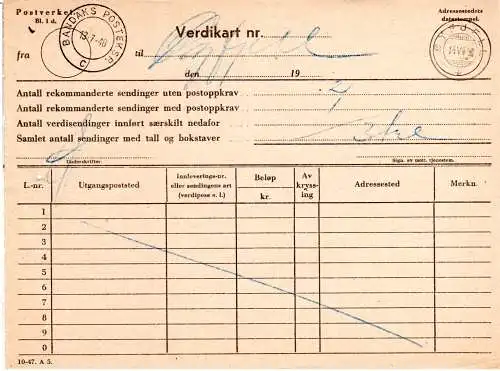 Postverket.
Bl. 1 d.
BANDAKS POSTEKSP.
13-7-49
C
Verdikart nr.
Adressestedets
datostempel.
fra
til
den 19
Antall rekommanderte sendinger uten postoppkrav
Antall rekommanderte sendinger med postoppkrav
Antall verdisendinger innført særskilt nedafor
Samlet antall sendinger med tall og bokstaver
Underskrifter.
Sign. av mott. tjenestem.
L.-nr. Utgangspoststed Innleverings-nr. eller sendingens art (verdipose o. l.) Beløp kr. Av kryss- ing Adressested Merkn.
1
2
3
4
5
6
7
8
9
0
10-47. A 5.